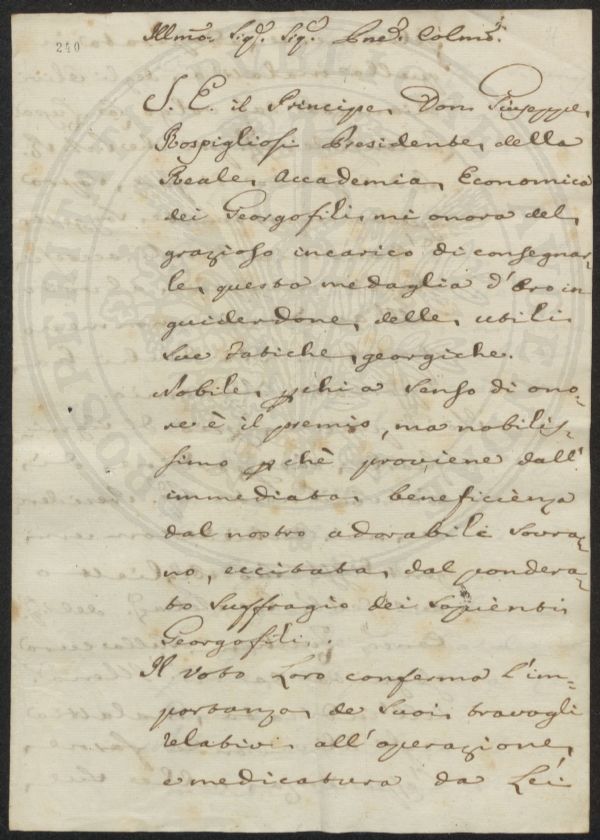 240
Illmo. Sigr. Sigr. Pne. Colmo.
S. E. il Principe Don Giuseppe
Rospigliosi Presidente della
Reale Accademia Economica
dei Georgofili mi onora del
grazioso incarico di consegnar-
le questa medaglia d'Oro in
guiderdone delle utili
Sue fatiche georgiche.
Nobile p chi a senso di ono-
re è il premio, ma nobilis-
simo p chè proviene dall'
immediata beneficienza
dal nostro adorabile Sovra-
no, eccitata dal pondera-
to suffragio dei Sapienti
Georgofili.
Il voto Loro conferma l'im-
portanza de Suoi travagli
relativi all'operazione
e medicatura da Lei